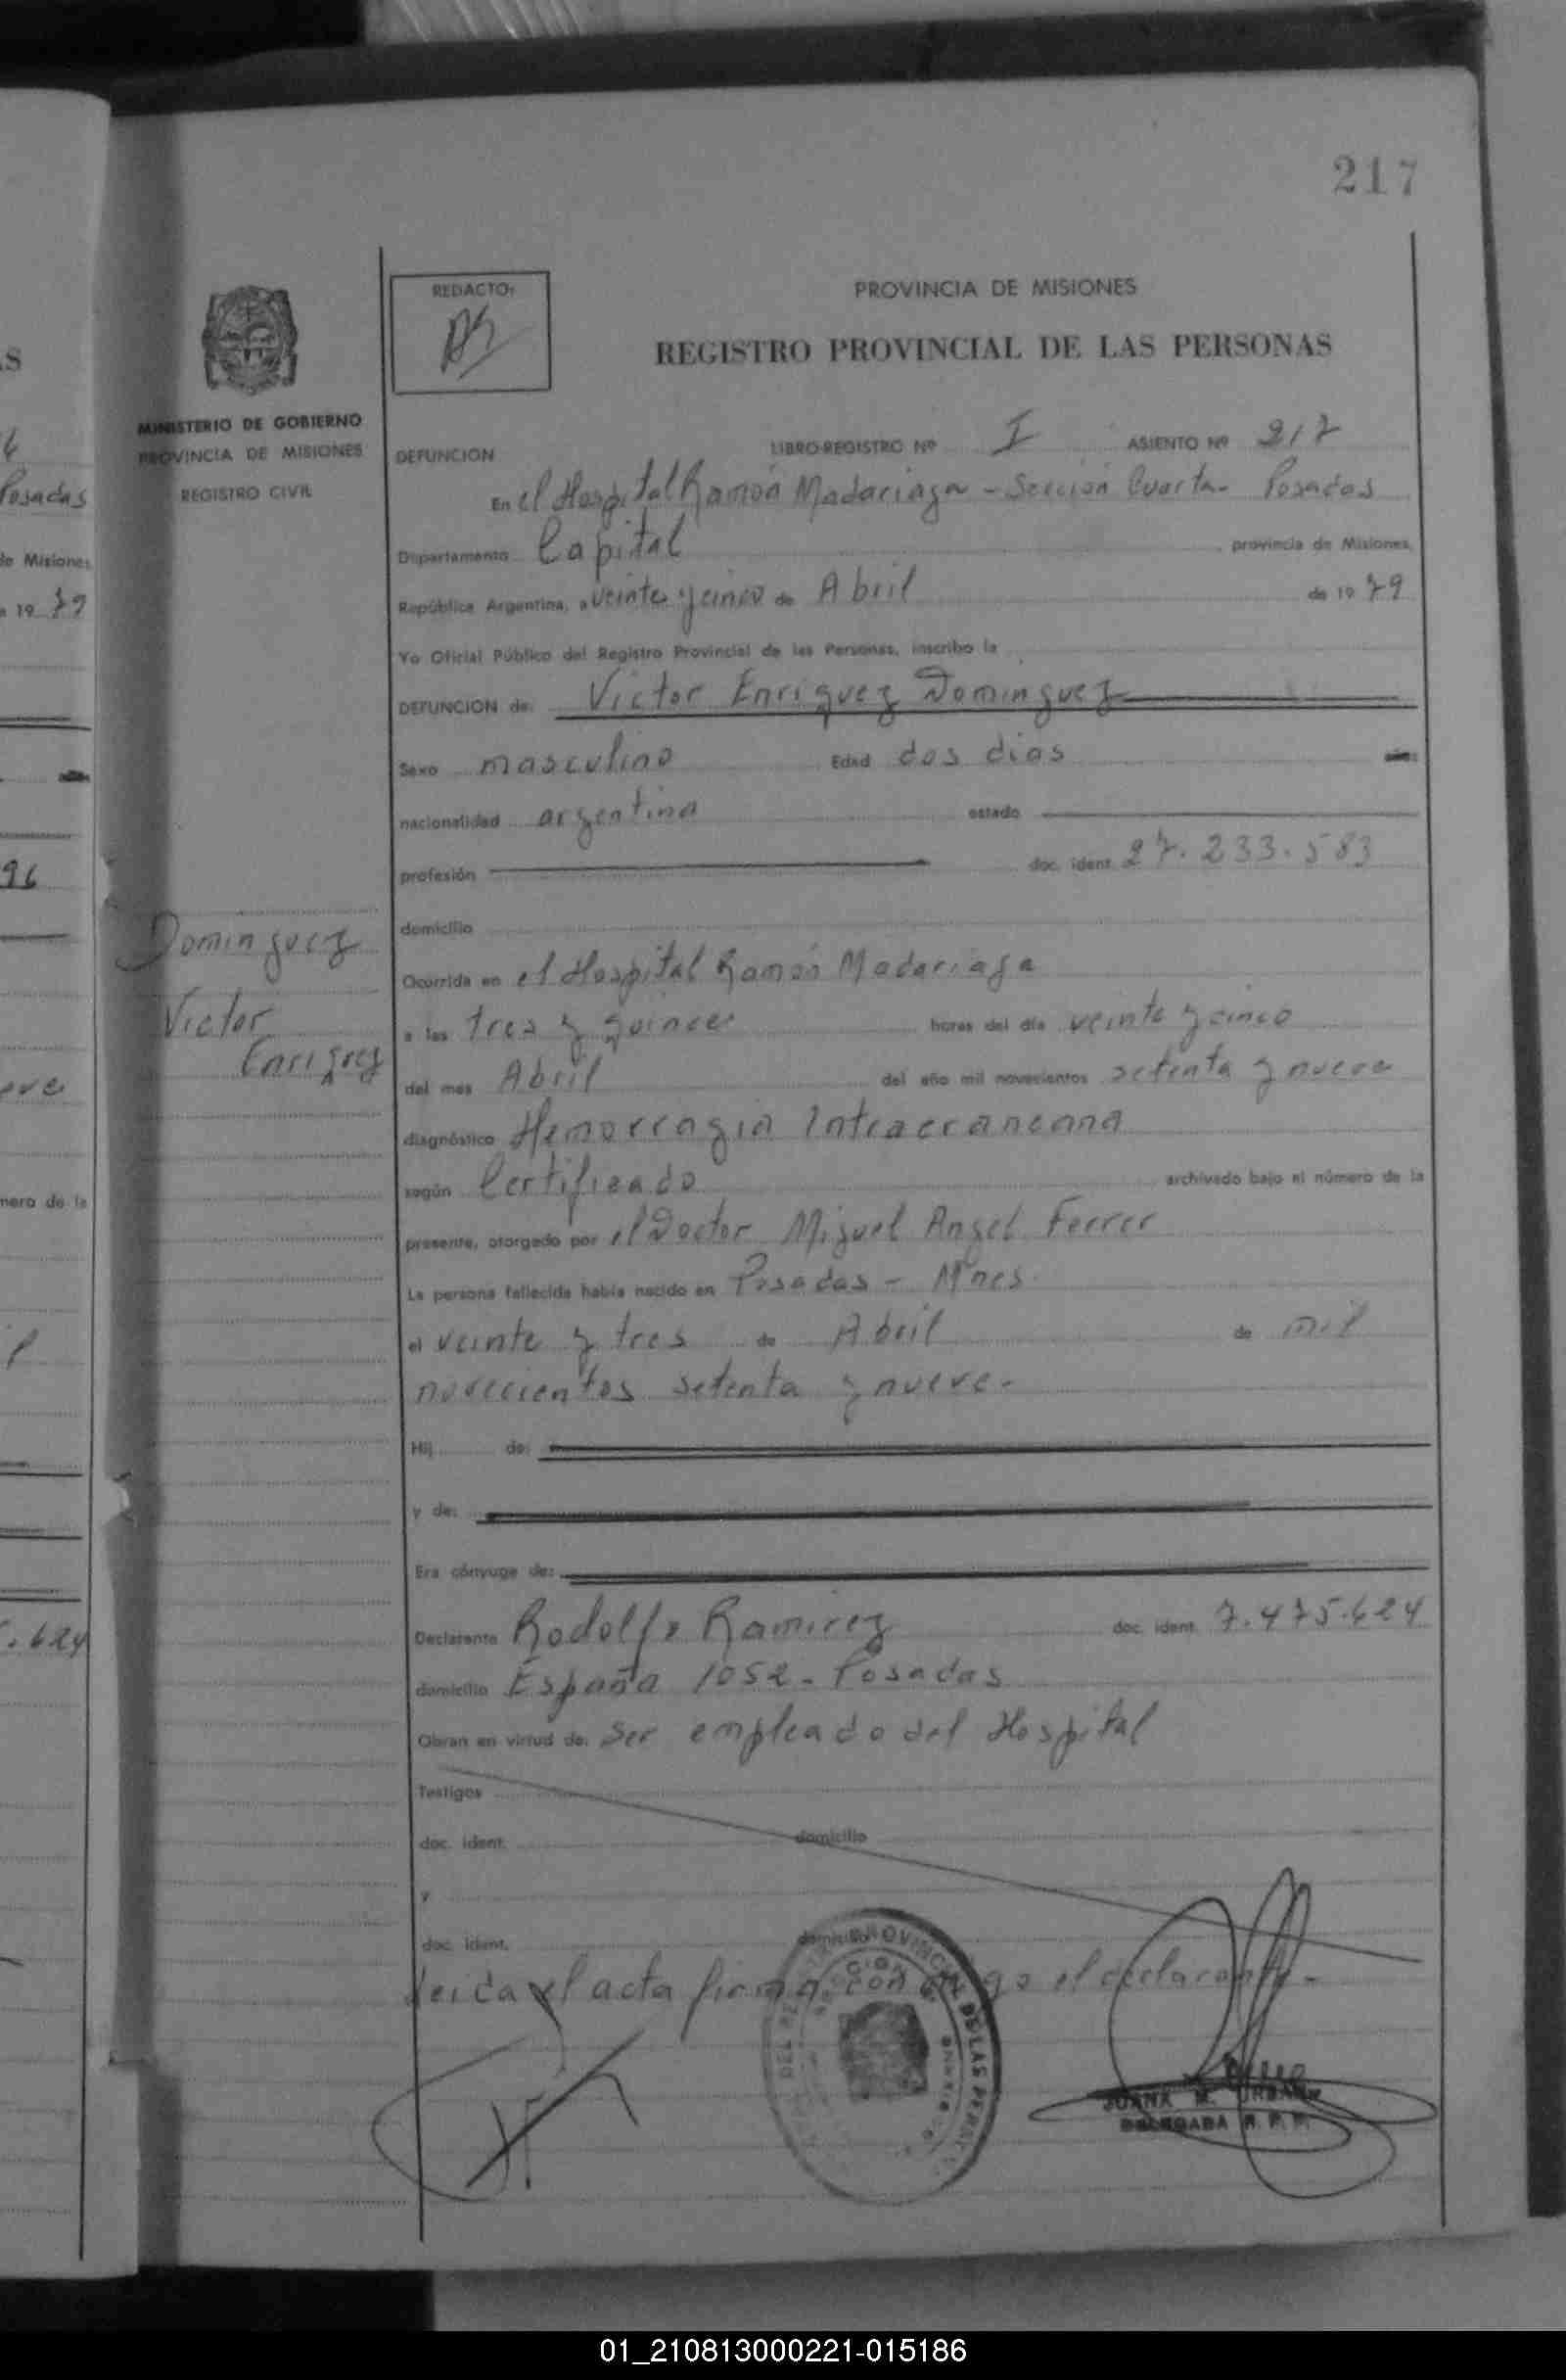 217
REDACTO:
PROVINCIA DE MISIONES
REGISTRO PROVINCIAL DE LAS PERSONAS
MINISTERIO DE GOBIERNO
PROVINCIA DE MISIONES
REGISTRO CIVIL
DEFUNCION LIBRO-REGISTRO Nº I ASIENTO Nº 217
En el Hospital Ramón Madariaga - Sección Cuarta - Posadas
Departamento Capital provincia de Misiones,
República Argentina, a veinte y cinco de Abril de 1979
Yo Oficial Público del Registro Provincial de las Personas, inscribo la
DEFUNCION de: Victor Enriquez Dominguez
Sexo masculino Edad dos dias
nacionalidad argentina estado
profesión doc. ident. 27.233.583
domicilio
Dominguez
Victor
Enriquez
Ocurrida en el Hospital Ramón Madariaga
a las tres y quince horas del día veinte y cinco
del mes Abril del año mil novecientos setenta y nueve
diagnóstico Hemorragia Intracraneana
según Certificado archivado bajo el número de la
presente, otorgado por el Doctor Miguel Angel Ferrer
La persona fallecida había nacido en Posadas - Mnes.
el veinte y tres de Abril de mil
novecientos setenta y nueve.-
Hij de:
y de:
Era cónyuge de:
Declarante Rodolfo Ramirez doc. ident. 7.475.624
domicilio España 1052 - Posadas
Obran en virtud de: Ser empleado del Hospital
Testigos
doc. ident. domicilio
y
doc. ident. domicilio
Leida el acta firma con migo el declarante.-
JUANA M. URBAN
DELEGADA R. P. P.
Posadas
de Misiones
1979
96
mero de la
.624
01_210813000221-015186